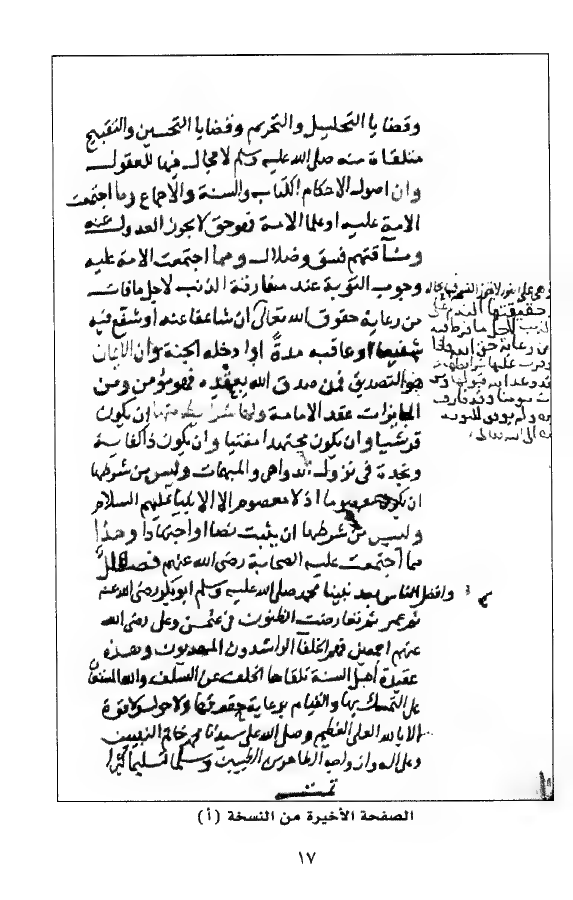 وقضايا التحليل والتحريم وقضايا التحسين والتقبيح
متلقاة منه صلى الله عليه وسلم لا مجال فيها للعقول
وان اصول الاحكام الكتاب والسنة والاجماع وما اجتمعت
الامة عليه او علما الامة فهو حق لا يجوز العدول عنه
ومشاقتهم فسق وضلال ومما اجتمعت الامة عليه
وجوب التوبة عند مقارفة الذنب لاجل ما فات
من رعاية حقوق الله تعالى ان شا عفا عنه او شفع فيه
شفيعا او عاقبه مدة او ادخله الجنة وان الايمان
هو التصديق فمن صدق الله فهو مؤمن ومن
الجايزات عقد الامامة ان يكون
قرشيا وان يكون مجتهدا مفتيا وان يكون ذا كفاية
ونجدة في نزول الدواهي والمبهمات وليس من شرطها
ان يكون معصوما اذ لا معصوم الا الانبيا عليهم السلام
وليس من شرطها ان يثبت نصا او اجتهادا وهذا
مما اجتمعت عليه الصحابة رضي الله عنهم فصل
وافضل الناس بعد نبينا محمد صلى الله عليه وسلم ابو بكر رضي الله عنه
ثم عمر ثم تعارضت الظنون في عثمن وعلي رضي الله
عنهم اجمعين فهم الخلفا الراشدون المهديون وهذه
عقيدة اهل السنة تلقاها الخلف عن السلف والله المستعان
على التمسك بها والقيام برعاية حقوقها ولا حول ولا قوة
الا بالله العلي العظيم وصلى الله على سيدنا محمد خاتم النبيين
وعلى اله وازواجه الطاهرين الطيبين وسلم تسليما كثيرا
تمت
حقيقتها
الذنب لاجل ما فرط فيه
من رعاية حق الله
الى الله تعالى
الصفحة الأخيرة من النسخة (أ)
١٧